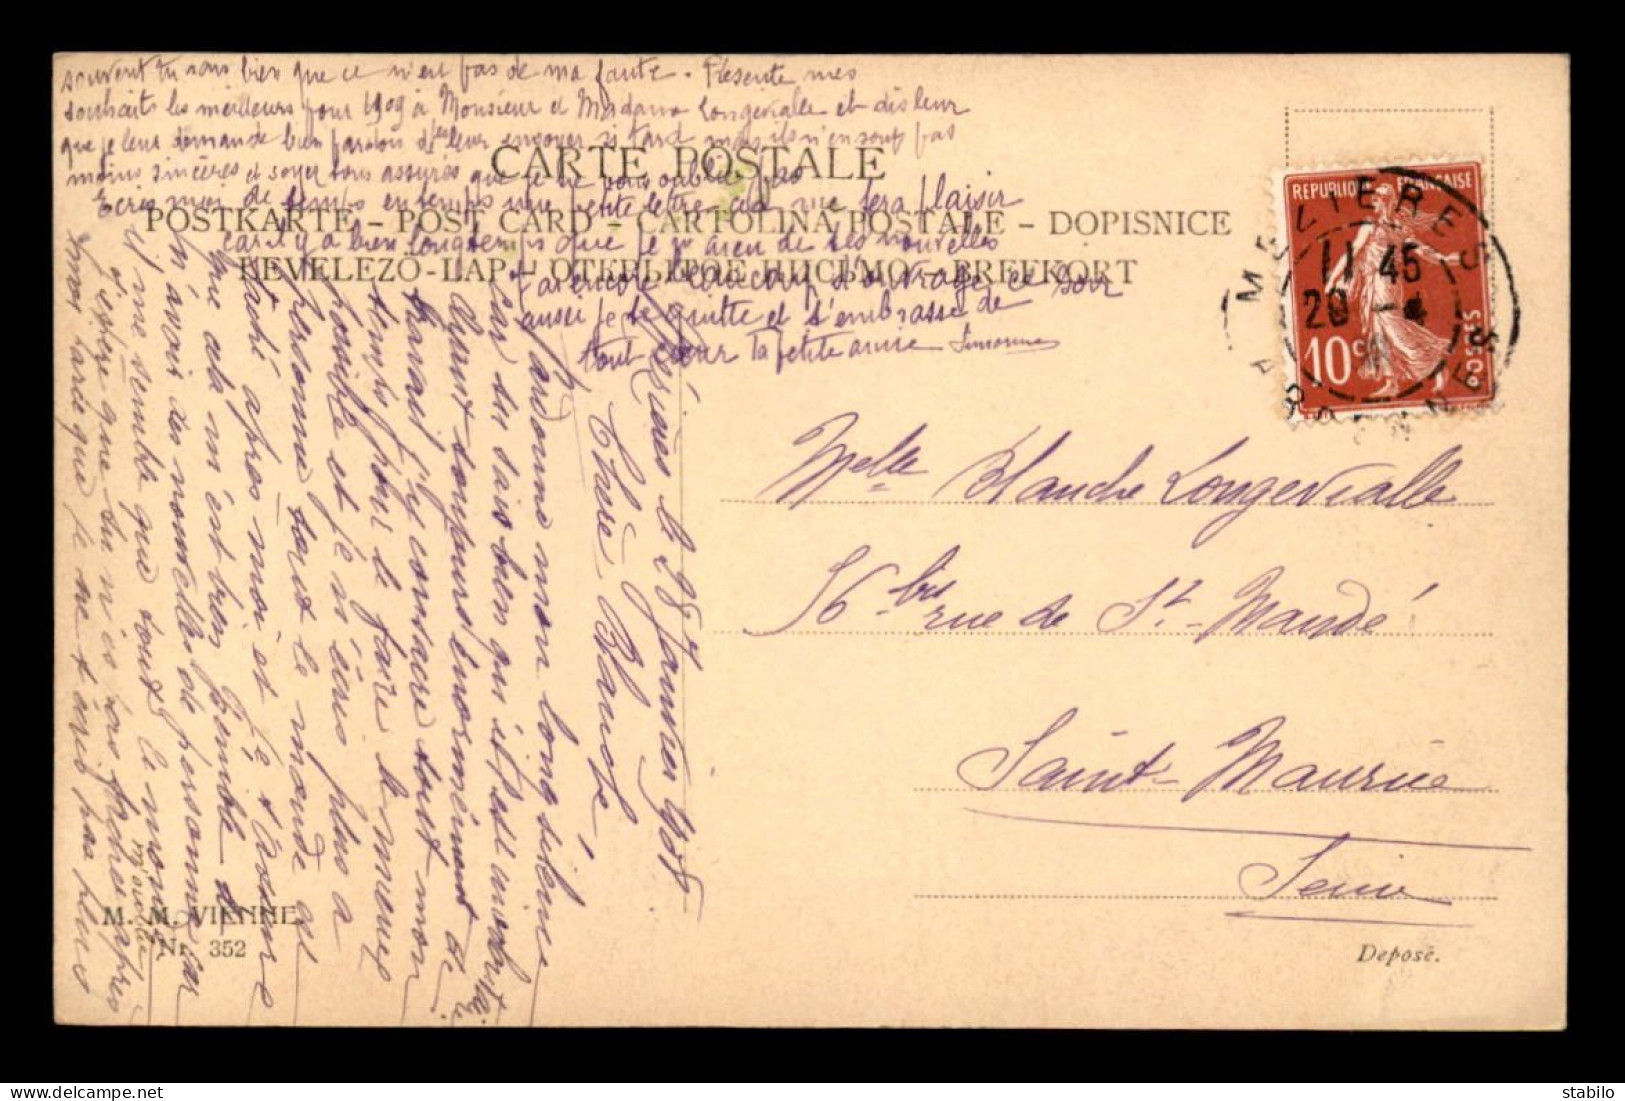 Mézières le 28 Janvier 1908
Chère Blanche
Pardonne mon long silence
car tu sais bien que
ayant toujours énormément de
travail j'y consacre tout mon
temps pour le faire le mieux
possible et je n'écris plus à
personne tout le monde est
fâché après moi et
que cela m'est bien pénible de
n'avoir des nouvelles de personne car
il me semble que tout le monde
m'oublie
J'espère que tu n'es pas fâchée après
moi parce que je ne t'écris pas plus
souvent tu sais bien que ce n'est pas de ma faute. Présente mes
souhaits les meilleurs pour 1909 à Monsieur et Madame Longevialle et dis leur
que je leur demande bien pardon de leur envoyer si tard mais ils n'en sont pas
moins sincères et soyez tous assurés que je ne vous oublie pas
Ecris moi de temps en temps une petite lettre cela me fera plaisir
car il y a bien longtemps que je n'ai eu de tes nouvelles
J'ai encore beaucoup d'ouvrage ce soir
aussi je te quitte et t'embrasse de
tout cœur Ta petite amie Simonne
CARTE POSTALE
POSTKARTE – POST CARD – CARTOLINA POSTALE – DOPISNICE
LEVELEZŐ-LAP – ОТКРЫТОЕ ПИСЬМО – BREFKORT
REPUBLIQUE FRANÇAISE
10 c POSTES
MEZIERES
11 45
20 -4
ARDENNES
Melle Blanche Longevialle
56 bis rue de St-Mandé
Saint-Maurice
Seine
M. M. VIENNE.
Nr. 352
Deposé.
stabilo